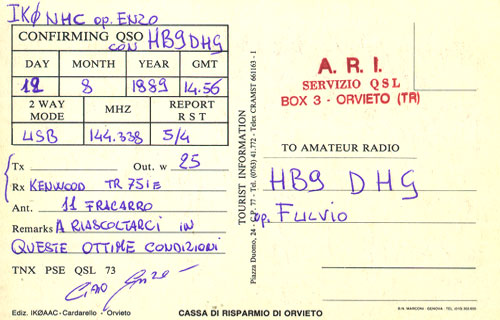 IKØNHC op. ENZO
CONFIRMING QSO
CON HB9DHG
DAY MONTH YEAR GMT
12 8 1989 14.56
2 WAY MODE MHZ REPORT R S T
USB 144.338 5/4
Tx Out. w 25
Rx KENWOOD TR 751E
Ant. 11 FRACARRO
Remarks A RIASCOLTARCI IN
QUESTE OTTIME CONDIZIONI
TNX PSE QSL 73
CIAO Enzo
Ediz. IKØAAC - Cardarello - Orvieto
TOURIST INFORMATION
Piazza Duomo, 24 - C.P. 77 - Tel. (0763) 41.772 - Telex CRAMST 661163 - I
A. R. I.
SERVIZIO QSL
BOX 3 - ORVIETO (TR)
TO AMATEUR RADIO
HB9 DHG
op. FULVIO
CASSA DI RISPARMIO DI ORVIETO